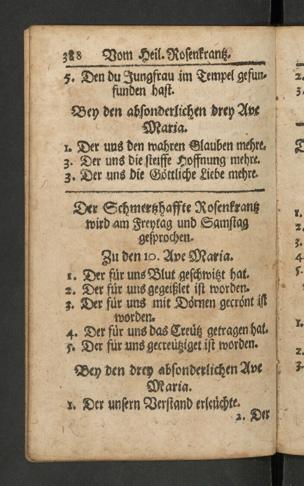 388 Vom Heil. Rosenkrantz.
5. Den du Jungfrau im Tempel gefun-
funden hast.
Bey den absonderlichen drey Ave
Maria.
1. Der uns den wahren Glauben mehre.
3. Der uns die steiffe Hoffnung mehre.
3. Der uns die Göttliche Liebe mehre.
Der Schmertzhaffte Rosenkrantz
wird am Freytag und Samstag
gesprochen.
Zu den 10. Ave Maria.
1. Der für uns Blut geschwitzt hat.
2. Der für uns gegeißlet ist worden.
3. Der für uns mit Dörnen gecrönt ist
worden.
4. Der für uns das Creütz getragen hat.
5. Der für uns gecreütziget ist worden.
Bey den drey absonderlichen Ave
Maria.
1. Der unsern Verstand erleüchte.
2. Der